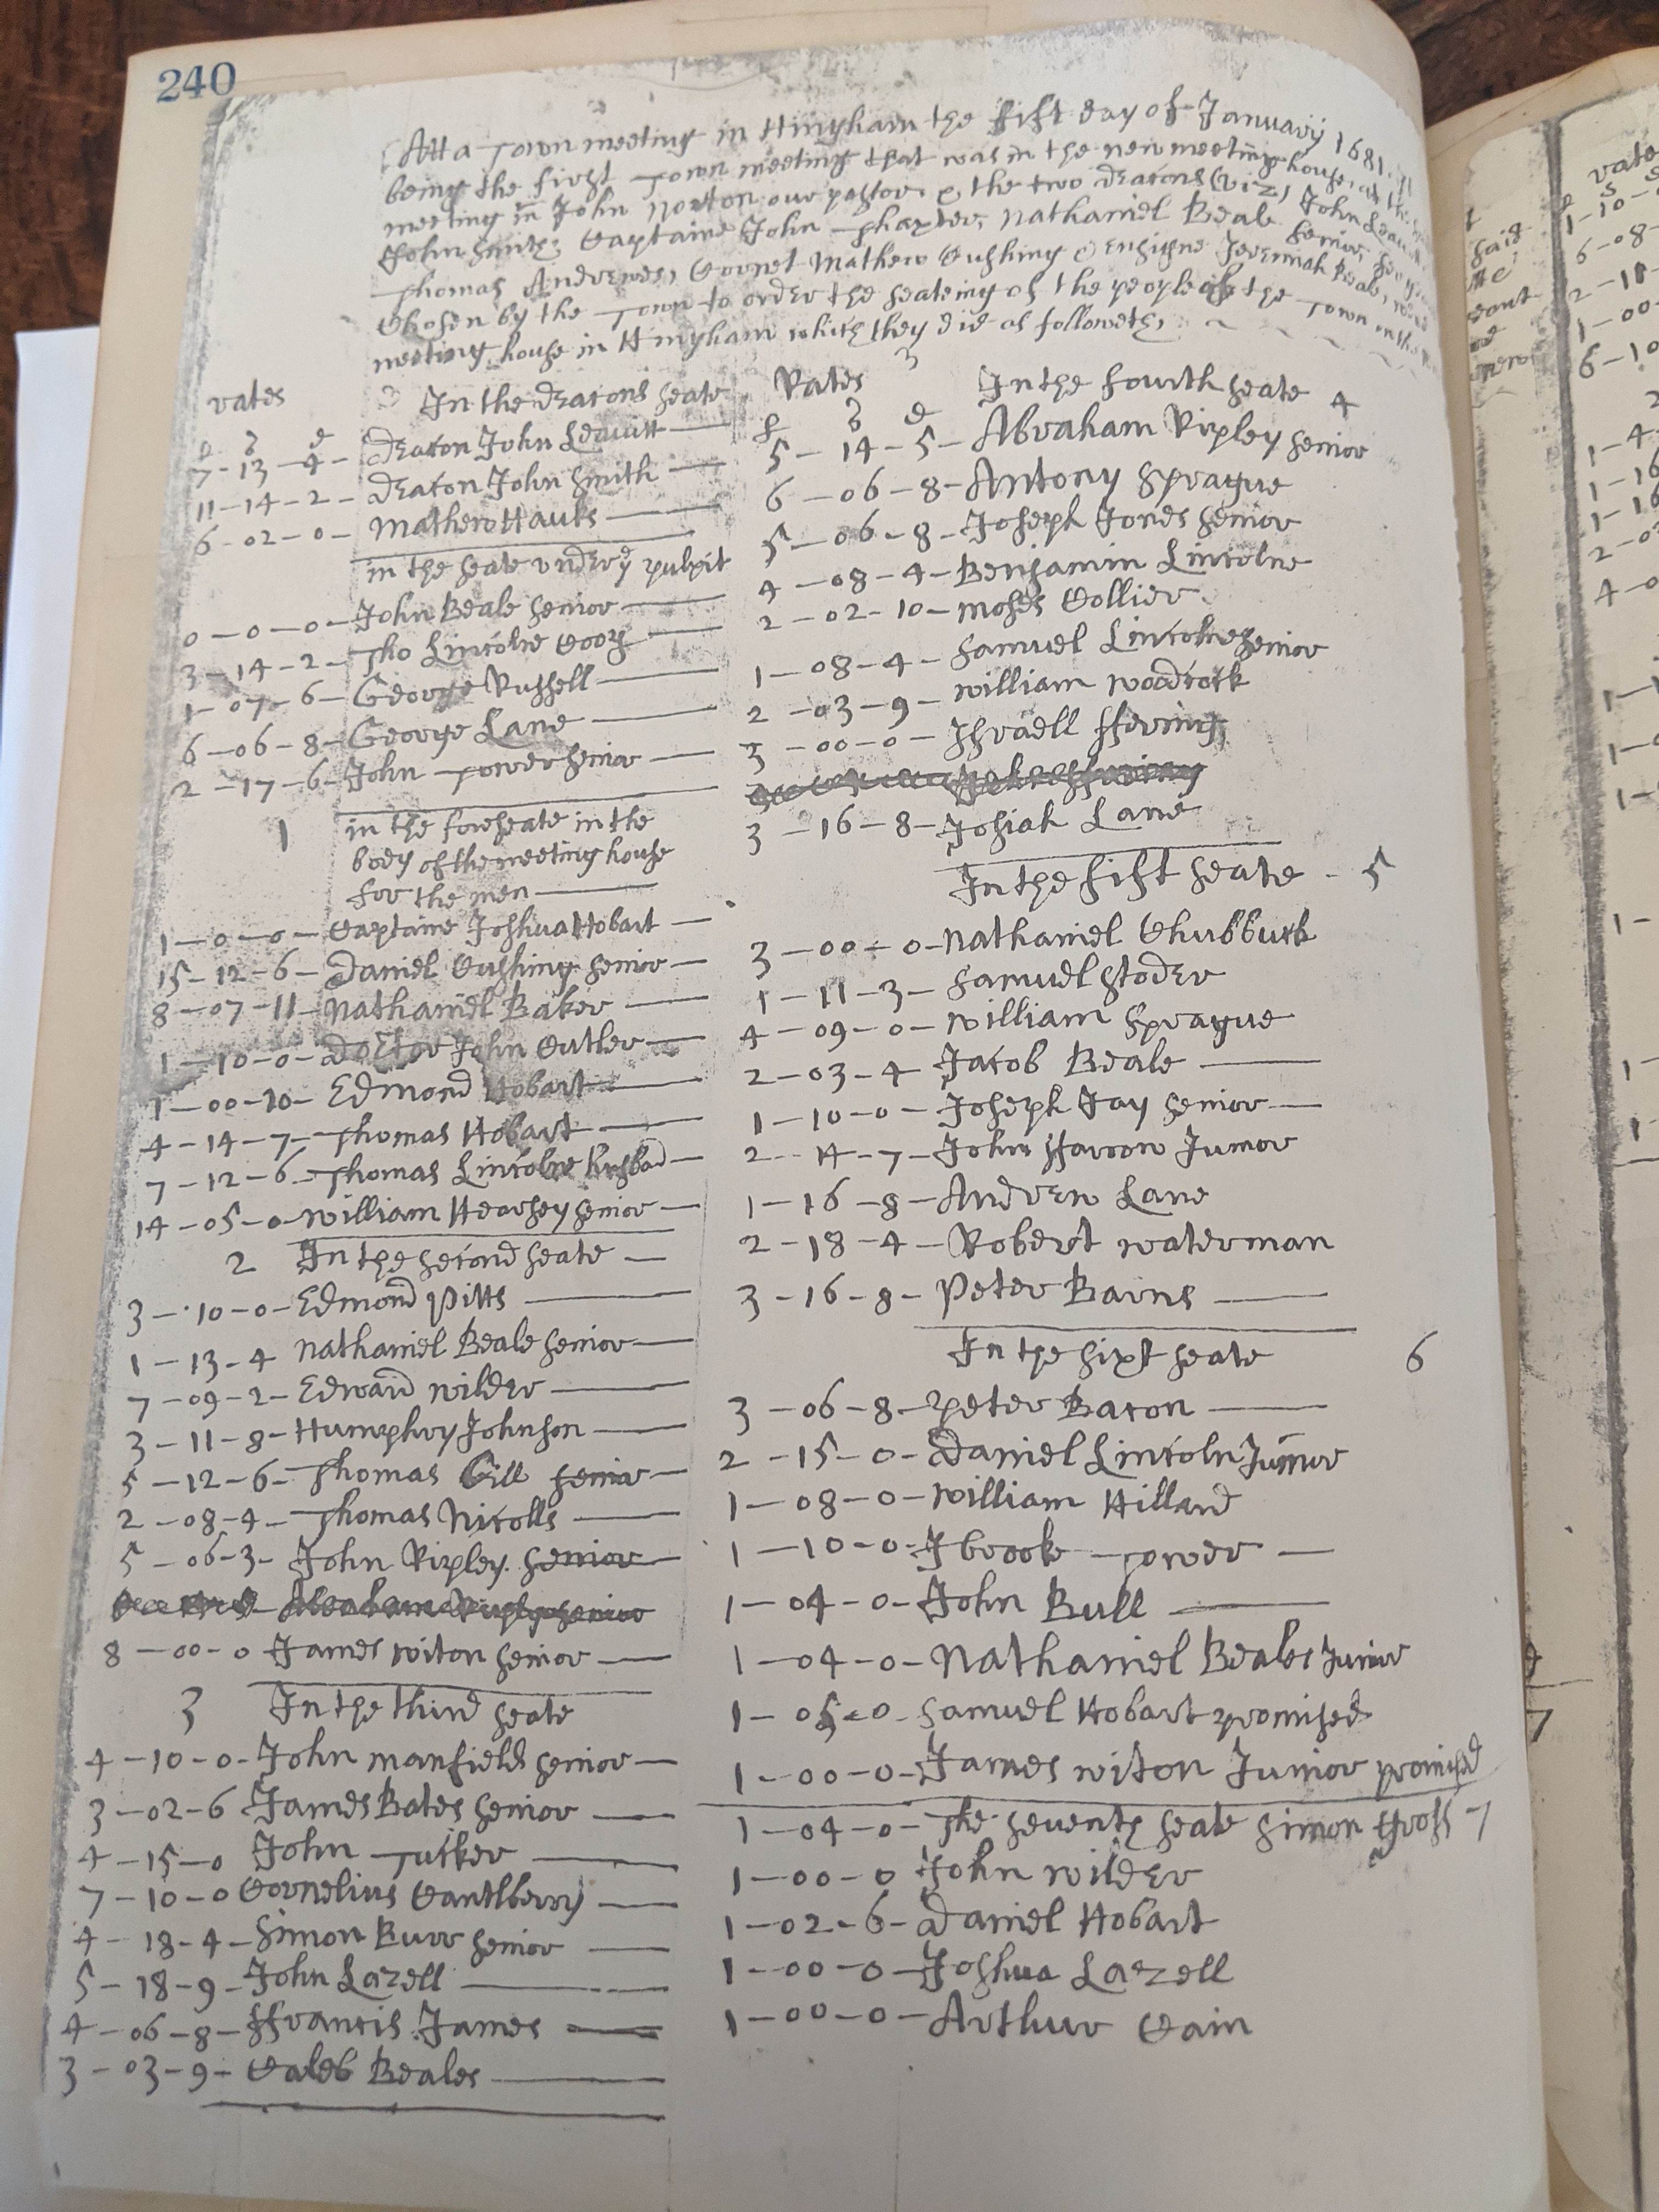 240
Att a Town meeting in Hingham the fift day of January 1681
being the first Town meeting that was in the new meeting house, at
meeting in John Norton our pastor & the two deacons (viz) John Leavitt
John Smith; Captaine John Thaxter, Nathaniel Beale Senior,
Thomas Andrewes, Cornet Mathew Cushing & Ensigne Jeremiah Beale,
Chosen by the Town to order the seateing of the people of the Town in the
meeting house in Hingham which they did as followeth,
rates In the deacons seate
£ s d
7-13-4- Deacon John Leavitt
11-14-2- Deacon John Smith
6-02-0- Mathew Hauks
in the seate under yᵉ pulpit
0-0-0- John Beale senior
3-14-2- Tho Lincolne Coop
1-07-6- George Russell
6-06-8- George Lane
2-17-6- John Tower senior
1 in the foreseate in the
body of the meeting house
for the men
1-0-0- Captaine Joshua Hobart
15-12-6- Daniel Cushing senior
8-07-11- Nathaniel Baker
1-10-0- Doctor John Cutler
1-00-10- Edmond Hobart
4-14-7- Thomas Hobart
7-12-6- Thomas Lincolne husband
14-05-0- William Hearsey senior
2 In the second seate
3-10-0- Edmond Pitts
1-13-4 Nathaniel Beale senior
7-09-2- Edward Wilder
3-11-8- Humphry Johnson
5-12-6- Thomas Gill senior
2-08-4- Thomas Nicolls
5-06-3- John Ripley senior
Abraham Ripley senior
8-00-0 James Witon senior
3 In the third seate
4-10-0- John Manfield senior
3-02-6 James Bates senior
4-15-0 John Tucker
7-10-0 Cornelius Cantlberry
4-18-4- Simon Burr senior
5-18-9- John Lazell
4-06-8- ffrancis James
3-03-9- Caleb Beales
Rates In the fourth seate 4
£ s d
5-14-5- Abraham Ripley senior
6-06-8- Antony Sprague
5-06-8- Joseph Jones senior
4-08-4- Benjamin Lincolne
2-02-10- Moses Collier
1-08-4- Samuel Lincolne senior
2-03-9- William Woodcock
3-00-0- Israell ffering
3-16-8- Josiah Lane
In the fift seate - 5
3-00-0- Nathaniel Chubbuck
1-11-3- Samuel Stoder
4-09-0- William Sprague
2-03-4 Jacob Beale
1-10-0- Joseph Jay senior
2-14-7- John ffaroon Junior
1-16-8- Andrew Lane
2-18-4- Robert Waterman
3-16-8- Peter Barns
In the sixt seate 6
3-06-8- Peter Bacon
2-15-0- Daniel Lincoln Junior
1-08-0- William Hillard
1-10-0- Ibrook Tower
1-04-0- John Bull
1-04-0- Nathaniel Beales Junior
1-05-0- Samuel Hobart promised
1-00-0- James Witon Junior promised
1-04-0- The seventh seate Simon Gross 7
1-00-0 John Wilder
1-02-6- Daniel Hobart
1-00-0- Joshua Lazell
1-00-0- Arthur Cain
said
rates
1-10-
6-08-
2-11-
1-00-
6-10
1-4-
1-16
1-16
4-0
7